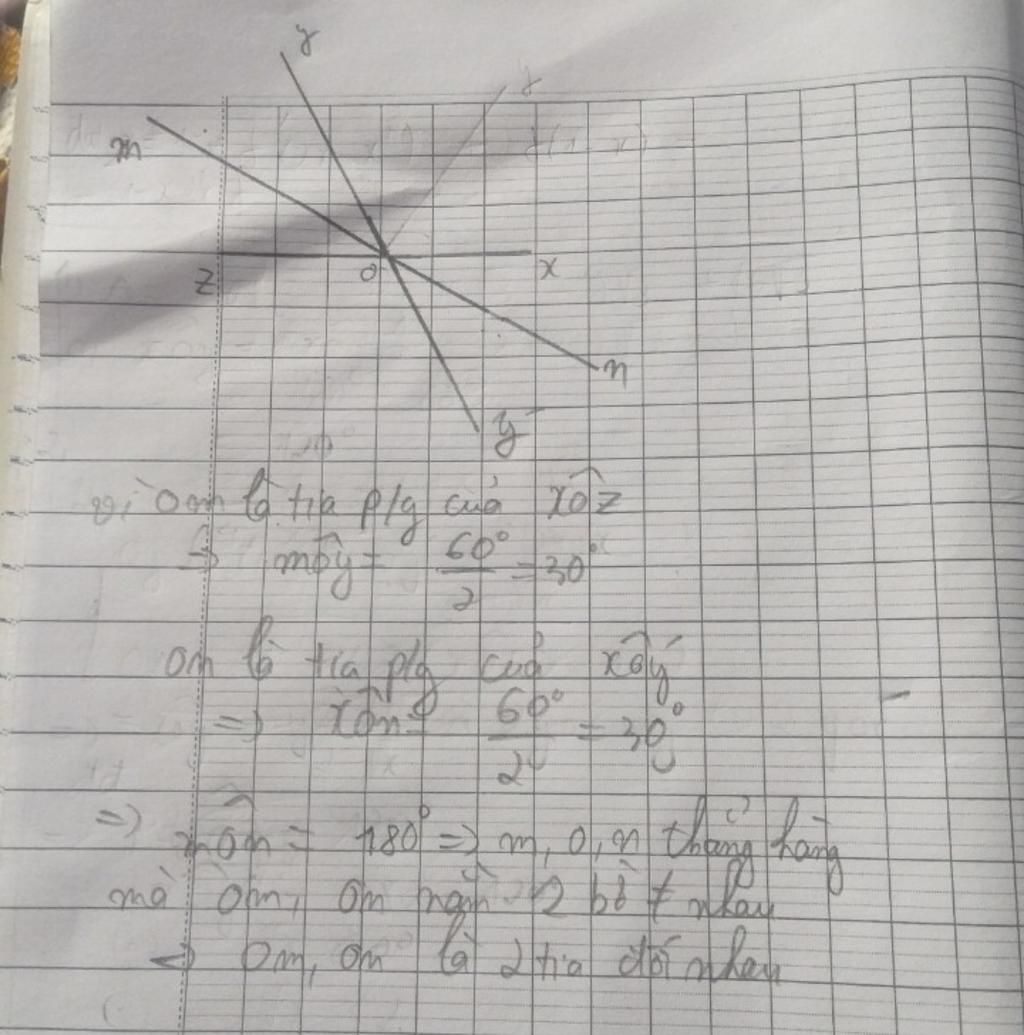 y
y
m
z
o
x
n
y'
vì om là tia p/g của xôz
=> môy = 60°/2 = 30°
on là tia p/g của xôy'
=> xôn = 60°/2 = 30°
=>
môn = 180° => m, o, n thẳng hàng
mà om, on nằm 2 bờ ≠ nhau
=> Om, on là 2 tia đối nhau